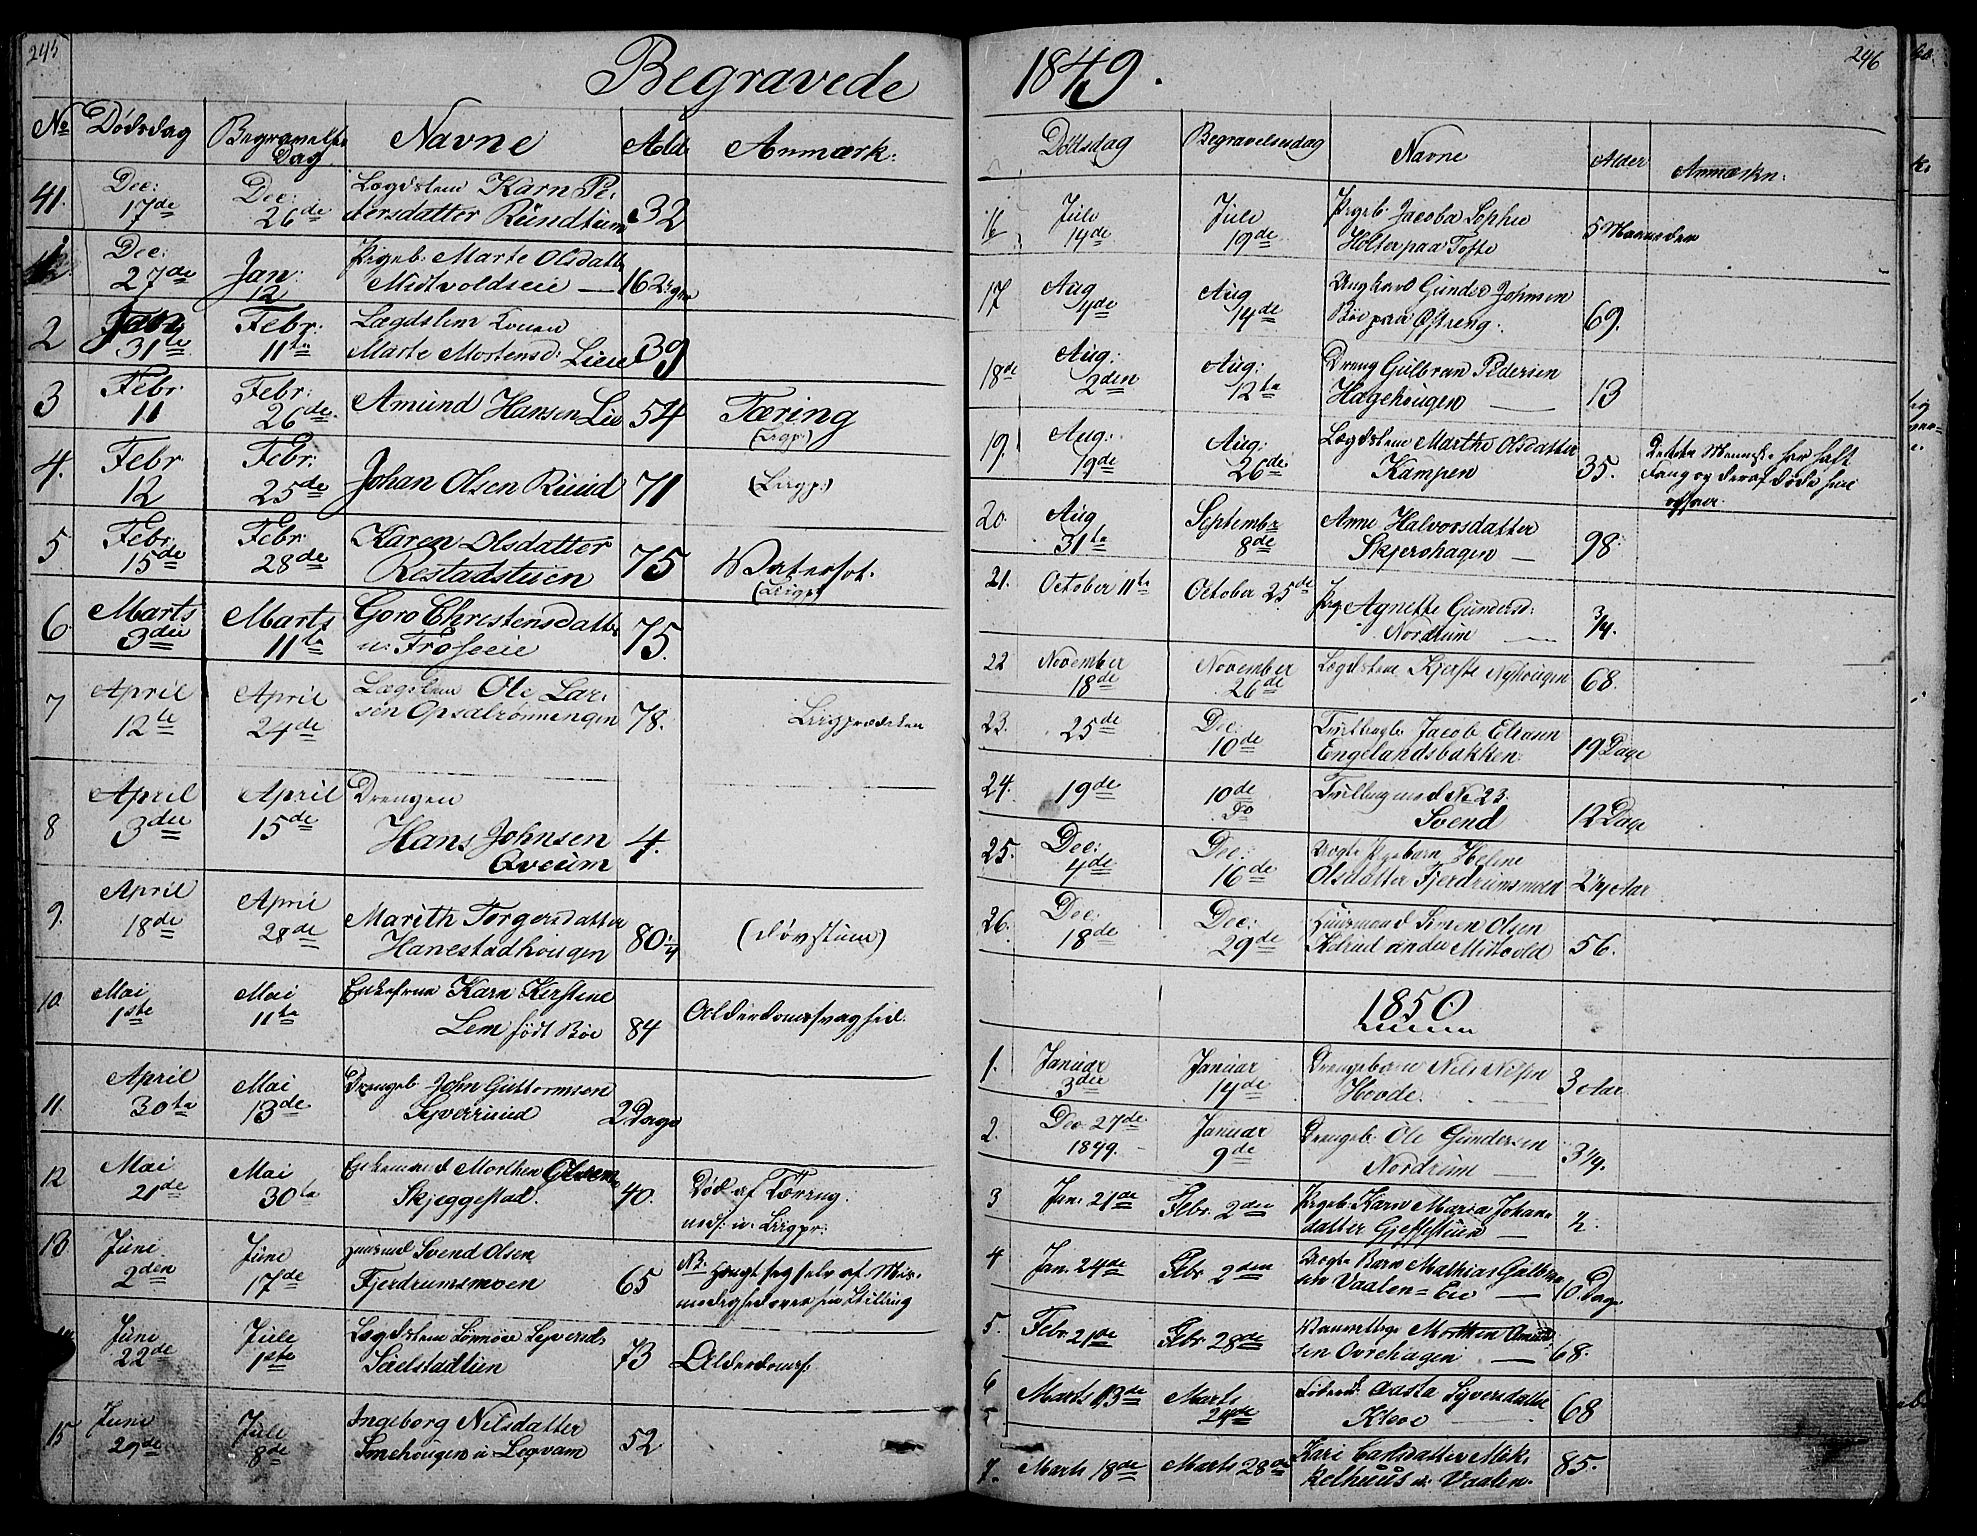 245
Begravede
No Dødsdag Begravelse Dag Navne Ald: Anmærk:
41. Dec: 17de Dec: 26de Lægdslem Karn Pe-
dersdatter Rúndtúm 32
Dec: 27de Jan: 12 Pigeb: Marte Olsdatte
Midtvoldseie — 16
2 Jan 31te Febr: 11te Lægdslem Konen
Marte Mortensd: Liene 39
3 Febr 11 Febr: 26de Amúnd Hansen Lie 54 Tæring
4. Febr 12 Febr. 25de Johan Olsen Rúúd 71
5 Febr. 15de Febr. 28de Karen Olsdatter
Restadstúen 75 Watersot.
6. Marts 3die Marts 11te Goro Christensdatte
u: Froseeie 75.
7 April 12te April 24de Lægdslem Ole Lar-
sen Opsalrønningen 78.
8 April 3die April 15de Drengen
Hans Johnsen
Qveúm 4.
9. April 18de April 28de Marith Torgersdatter
Hanestadhougen 80 1/4 (døvstum)
10. Mai 1ste Mai 11te Enkefrue Karn Kirstine
Lem født Bøe 84 Alderdomsvaghed.
11. April 30te Mai 13de Drengeb John Gúttormsen
Syverrúúd 2 Dage
12 Mai 21de Mai 30te Enkemand Morthen
Skjeggestad. 40. Død af Tæring.
13 Júni 2den Júni 17de Húúsmd Svend Olsen
Fjerdrumsmoen 65 NB. Hængt seg selv af Mis-
modighed over sin Stilling
Júni 22de Júli 1ste Lægdslem Syversd.
73 Alderdoms.
15 Júni 29de Júli 8de Ingeborg Nilsdatter
Smehougen u Legvam 52
1849.
246
Dødsdag Begravelsesdag Navne Alder Anmærkn:
16 Júli 14de Júli 19de Pigeb. Jacoba Sophie
Holter paa Tofte 5 Maaneder
17 Aug 4de Aug 14de Ungkarl Gúnder Johnsen
Bøe paa Østreng. 69.
18de Aug: 2den Aug: 12te Dreng Gúlbran Pedersen
Hagehougen — 13
19. Aug: 19de Aug: 26de Lægdslem Marthe Olsdatter
Kampen 35. Dette Menneske har haft
20. Aug 31te Septembr 8de Anne Halvorsdatter
Skjershagen — 98.
21. October 11te October 25de Pig. Agnethe Gúndersd:
Nordrúm — 3/4.
22 November 18de November 26de Lægdslem Kjersti Nyhougen 68.
23. 25de Dec: 10de Tvillingb. Jacob
Engelandsbakken 19 Dage
24. 19de 10de Do Tvilling med No 23.
Svend 12 Dage
25. Dec: 4de Dec: 16de Uægte Pigebarn Helene
Olsdatter Fjerdrúmsmoen 2 1/4 Aar
26. Dec: 18de Dec: 29de Húúsmand Simen Olsen
Kolrúd únder Mitvold 56.
1850
1. Januar 3die Januar 14de Drengebarn Nils Nilsen
Hovde. 3 Aar
2. Dec. 27de 1849. Januar 9de Drengeb. Ole Gúndersen
Nordrúm 3 1/4.
3 Jan. 21de Febr. 2den Pigeb. Karn Maria Johan-
datter — 1/2.
4 Jan. 24de Febr 2den Uægte Barn Mathias Gúlbran-
sen Vaalen-Eie — 10 Dage
5. Febr. 21de Febr 28de Morthen Amúnd
sen Ovrehagen — 68.
6 Marts 13de Marts 24de Aasta Syversdatter
Kleve — 68
7. Marts 18de Marts 28de Kari Carlsdatter Mik-
kelhúús u. Vaalen. 85.